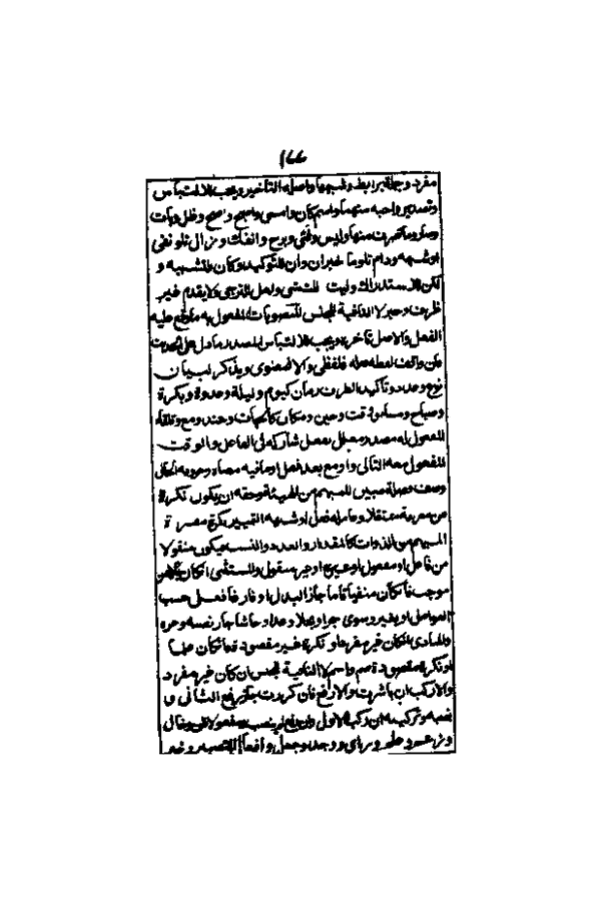 ١٦٦
مفرد وجملة برابط وشبهها واصله التاخير ويجب للالتباس
وتصدير واجبه منهما واسم كان وامسى واصبح واضحى وظل وبات
وصار وما تصرف منها وليس وفتئ وبرح وانفك وزال تلو نفي
او شبهه ودام تلو ما خبران وان للتوكيد وكان للتشبيه و
لكن للاستدراك وليت للتمني ولعل للترجي ولا يقدم غير
ظرف وخبر لا النافية للجنس المنصوبات المفعول به ما وقع عليه
الفعل والاصل تاخره ويجب للالتباس المصدر ما دل على الحدث
فان وافق لفظه فعله فلفظي والا فمعنوي ويذكر لبيان
نوع وعدد وتاكيد الظرف زمان كيوم وليلة وغدوة وبكرة
وصباح ومساء ووقت وحين ومكان كالجهات وعند ومع وتلقاء
المفعول له مصدر معلل بفعل شاركه في الفاعل والوقت
المفعول معه التالي واو مع بعد فعل او ما فيه معناه وحروفه الحال
وصف فضلة مبين للمبهم من الهيئة وحقه ان يكون نكرة
من معرفة منتقلا وعامله فعل او شبهه التمييز نكرة مفسرة
المبهم من الذوات كالمقدار والعدد والنسب فيكون منقولا
من فاعل او مفعول او غيره او غير منقول والمستثنى ان كان من
موجب فان كان منفيا تاما جاز البدل او فارغا فعلى حسب
العوامل او بغير وسوى جر او بخلا وعدا وحاشا جاز نصبه وجره
والمنادى ان كان غير مفرد او نكرة غير مقصودة فان كان علما
او نكرة مقصودة ضم واسم لا النافية للجنس ان كان غير مفرد
والا ركب ان باشرت والا رفع فان كررت جاز رفع الثاني و
نصبه وتركيبه ان ركب الاول وان رفع لم ينصب ومفعولا ظن وخال
وزعم وعلم وراى ووجد وجعل وافعال التصيير وخبر